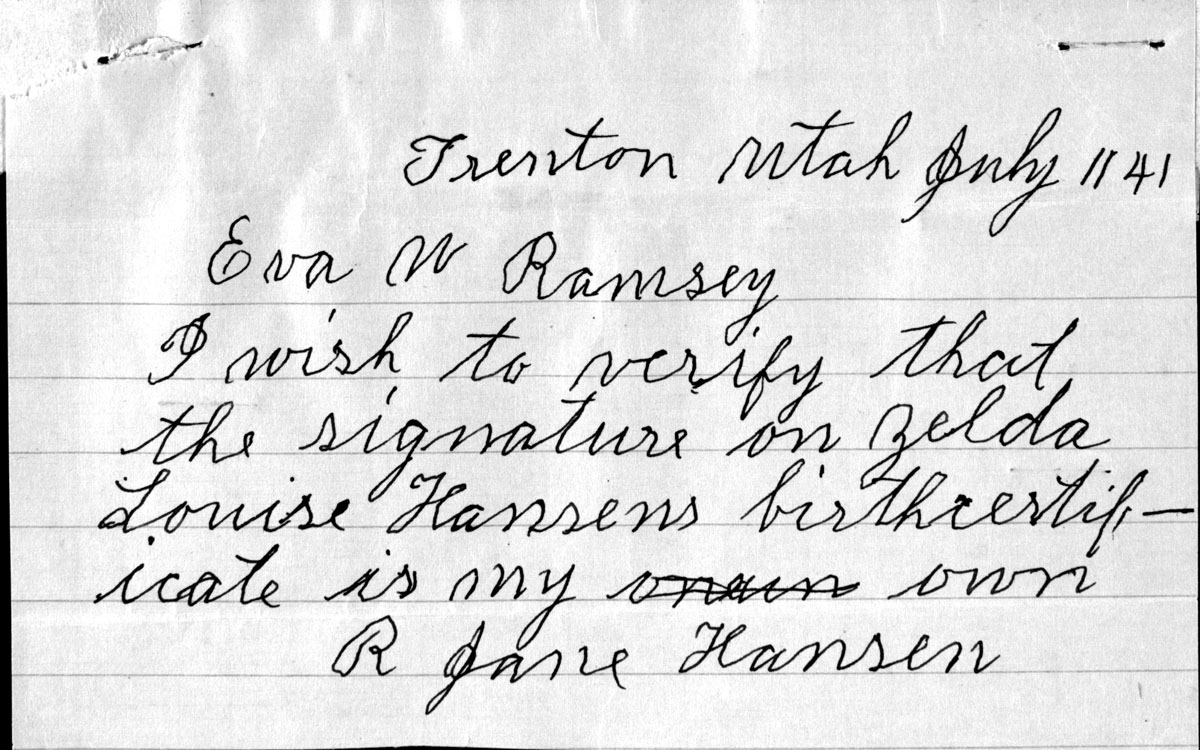 Trenton Utah July 11 41
Eva W Ramsey
I wish to verify that
the signature on Zelda
Louise Hansens birthcertif-
icate is my own
R Jane Hansen